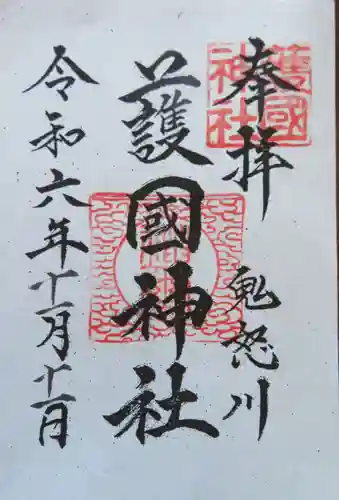 奉拝
鬼怒川
護國神社
令和六年十一月十一日
護國神社